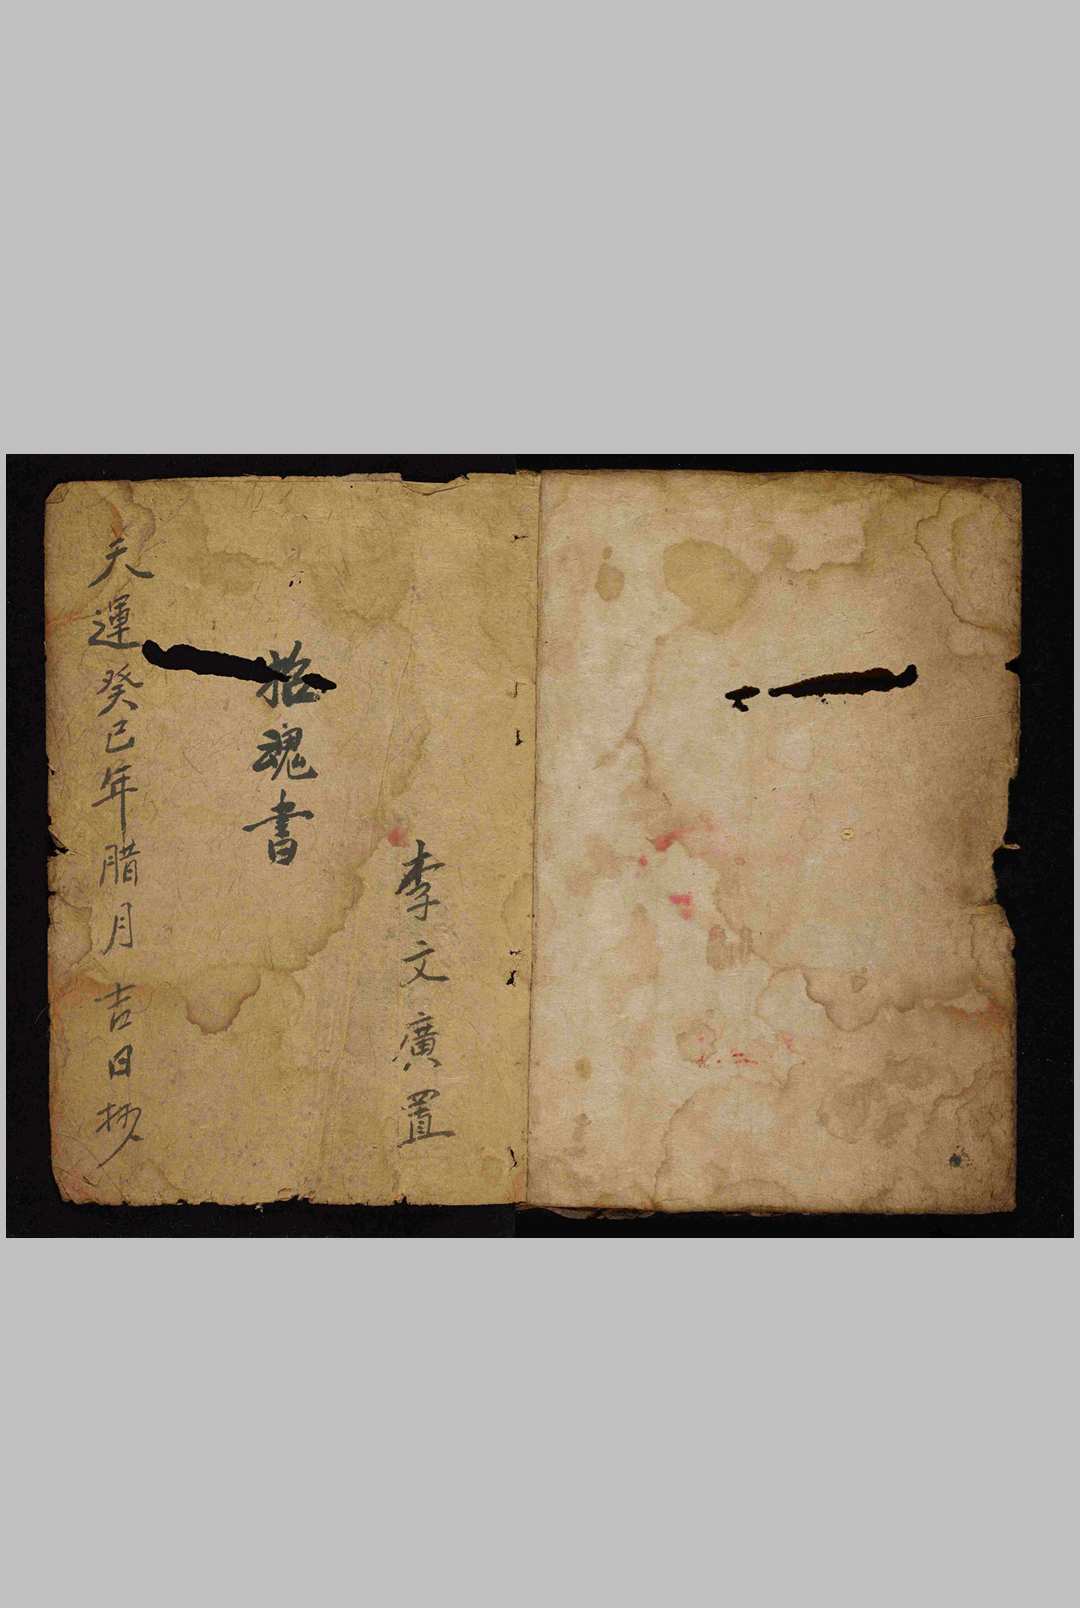 天運癸巳年腊月吉日抄
招魂書
李文廣置